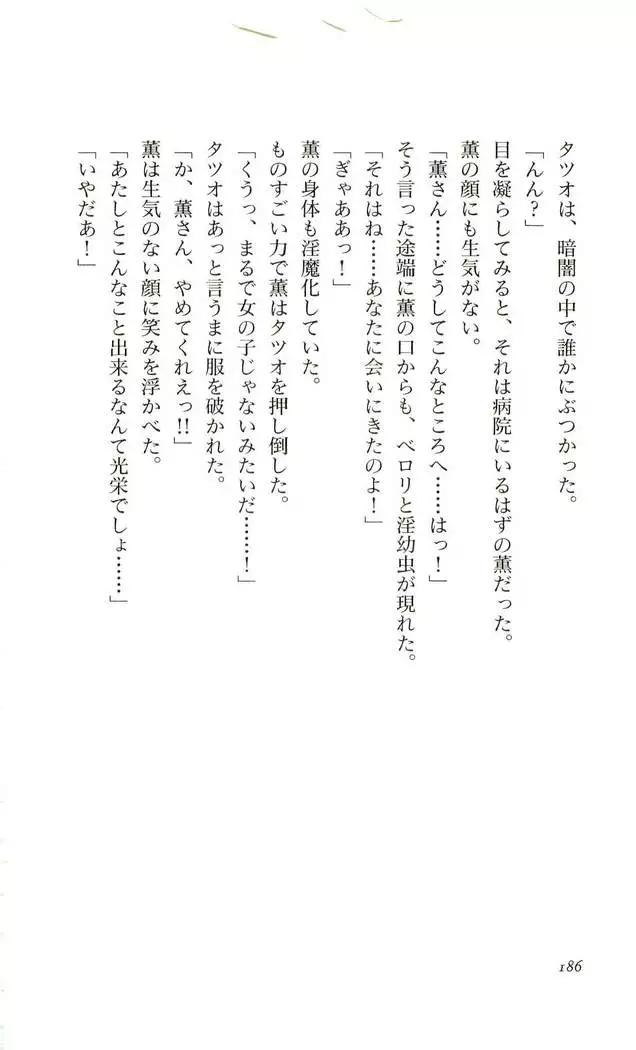 タツオは、暗闇の中で誰かにぶつかった。
「んん？」
目を凝らしてみると、それは病院にいるはずの薫だった。
薫の顔にも生気がない。
「薫さん……どうしてこんなところへ……はっ！」
そう言った途端に薫の口からも、ベロリと淫幼虫が現れた。
「それはね……あなたに会いにきたのよ！」
「ぎゃああっ！」
薫の身体も淫魔化していた。
ものすごい力で薫はタツオを押し倒した。
「くうっ、まるで女の子じゃないみたいだ………！」
タツオはあっと言うまに服を破かれた。
「か、薫さん、やめてくれえっ!!」
薫は生気のない顔に笑みを浮かべた。
「あたしとこんなこと出来るなんて光栄でしょ……」
「いやだあ！」
186